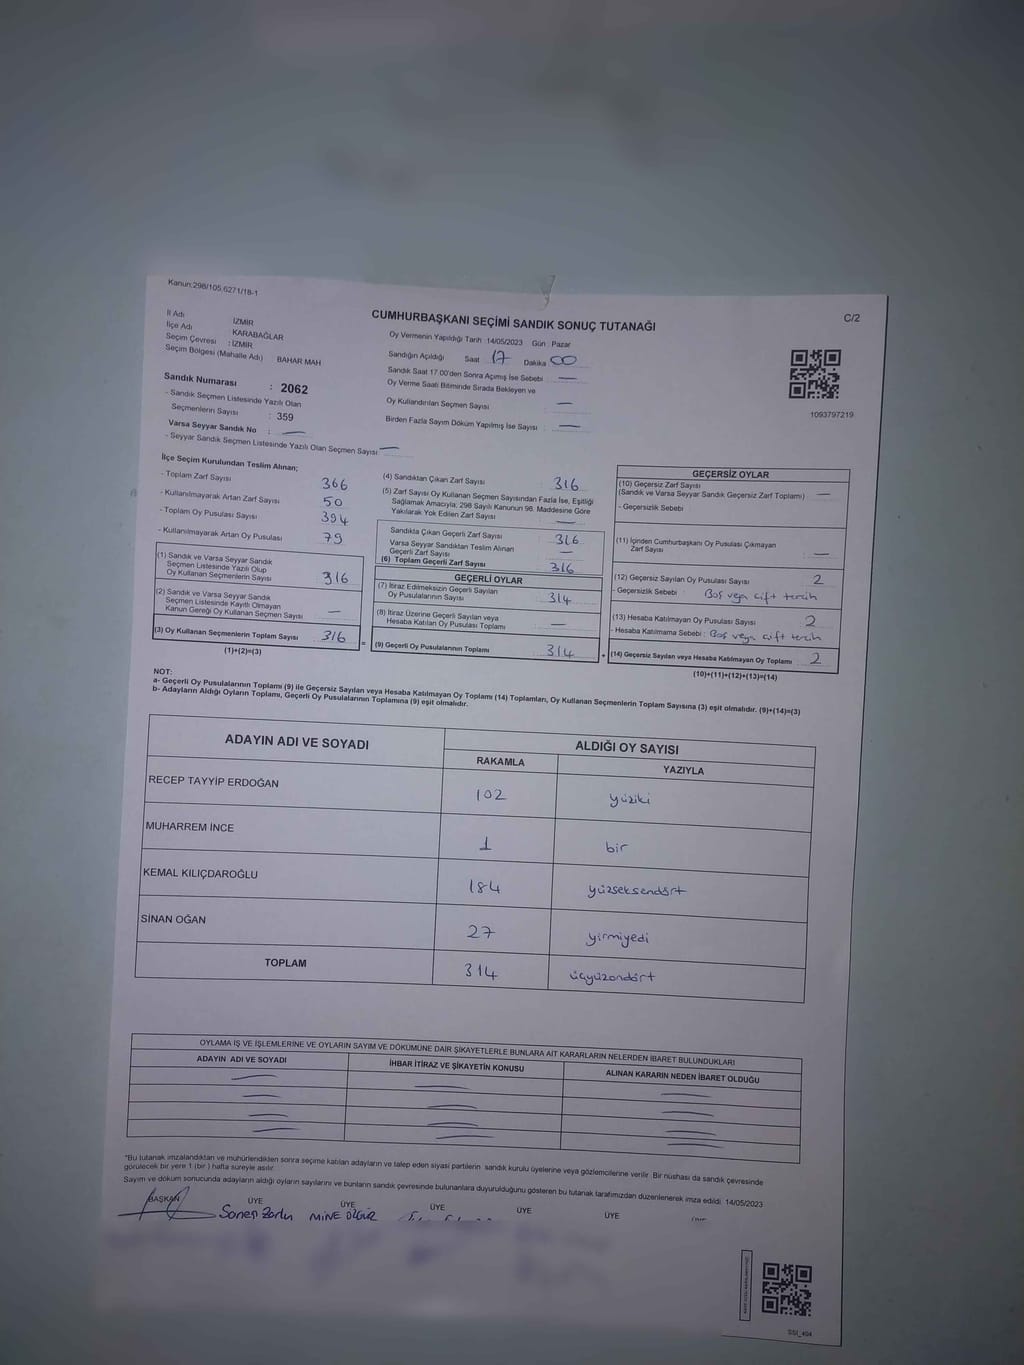 Kanun:298/105,6271/18-1
C/2
CUMHURBAŞKANI SEÇİMİ SANDIK SONUÇ TUTANAĞI
İl Adı : İZMİR
İlçe Adı KARABAĞLAR
Seçim Çevresi : İZMİR
Seçim Bölgesi (Mahalle Adı) BAHAR MAH
Sandık Numarası : 2062
- Sandık Seçmen Listesinde Yazılı Olan
Seçmenlerin Sayısı : 359
Varsa Seyyar Sandık No : —
- Seyyar Sandık Seçmen Listesinde Yazılı Olan Seçmen Sayısı —
Oy Vermenin Yapıldığı Tarih 14/05/2023 Gün : Pazar
Sandığın Açıldığı Saat 17 Dakika 00
Sandık Saat 17.00'den Sonra Açımış İse Sebebi —
Oy Verme Saati Bitiminde Sırada Bekleyen ve
Oy Kullandırılan Seçmen Sayısı —
Birden Fazla Sayım Döküm Yapılmış İse Sayısı —
1093797219
İlçe Seçim Kurulundan Teslim Alınan;
- Toplam Zarf Sayısı 366
- Kullanılmayarak Artan Zarf Sayısı 50
- Toplam Oy Pusulası Sayısı 394
- Kullanılmayarak Artan Oy Pusulası 79
(1) Sandık ve Varsa Seyyar Sandık
Seçmen Listesinde Yazılı Olup
Oy Kullanan Seçmenlerin Sayısı 316
(2) Sandık ve Varsa Seyyar Sandık
Seçmen Listesinde Kayıtlı Olmayan
Kanun Gereği Oy Kullanan Seçmen Sayısı —
(3) Oy Kullanan Seçmenlerin Toplam Sayısı 316
(1)+(2)=(3)
(4) Sandıktan Çıkan Zarf Sayısı 316
(5) Zarf Sayısı Oy Kullanan Seçmen Sayısından Fazla İse, Eşitliği
Sağlamak Amacıyla; 298 Sayılı Kanunun 98. Maddesine Göre
Yakılarak Yok Edilen Zarf Sayısı —
Sandıkta Çıkan Geçerli Zarf Sayısı 316
Varsa Seyyar Sandıktan Teslim Alınan
Geçerli Zarf Sayısı —
(6) Toplam Geçerli Zarf Sayısı 316
GEÇERLİ OYLAR
(7) İtiraz Edilmeksizin Geçerli Sayılan
Oy Pusulalarının Sayısı 314
(8) İtiraz Üzerine Geçerli Sayılan veya
Hesaba Katılan Oy Pusulası Toplamı —
= (9) Geçerli Oy Pusulalarının Toplamı 314 +
GEÇERSİZ OYLAR
(10) Geçersiz Zarf Sayısı
(Sandık ve Varsa Seyyar Sandık Geçersiz Zarf Toplamı) —
- Geçersizlik Sebebi
(11) İçinden Cumhurbaşkanı Oy Pusulası Çıkmayan
Zarf Sayısı —
(12) Geçersiz Sayılan Oy Pusulası Sayısı 2
- Geçersizlik Sebebi : Boş veya çift tercih
(13) Hesaba Katılmayan Oy Pusulası Sayısı 2
- Hesaba Katılmama Sebebi : Boş veya çift tercih
(14) Geçersiz Sayılan veya Hesaba Katılmayan Oy Toplamı 2
(10)+(11)+(12)+(13)=(14)
NOT:
a- Geçerli Oy Pusulalarının Toplamı (9) ile Geçersiz Sayılan veya Hesaba Katılmayan Oy Toplamı (14) Toplamları, Oy Kullanan Seçmenlerin Toplam Sayısına (3) eşit olmalıdır. (9)+(14)=(3)
b- Adayların Aldığı Oyların Toplamı, Geçerli Oy Pusulalarının Toplamına (9) eşit olmalıdır.
ADAYIN ADI VE SOYADI ALDIĞI OY SAYISI
RAKAMLA YAZIYLA
RECEP TAYYİP ERDOĞAN 102 yüziki
MUHARREM İNCE 1 bir
KEMAL KILIÇDAROĞLU 184 yüzseksendört
SİNAN OĞAN 27 yirmiyedi
TOPLAM 314 üçyüzondört
OYLAMA İŞ VE İŞLEMLERİNE VE OYLARIN SAYIM VE DÖKÜMÜNE DAİR ŞİKAYETLERLE BUNLARA AİT KARARLARIN NELERDEN İBARET BULUNDUKLARI
ADAYIN ADI VE SOYADI İHBAR İTİRAZ VE ŞİKAYETİN KONUSU ALINAN KARARIN NEDEN İBARET OLDUĞU
*Bu tutanak imzalandıktan ve mühürlendikten sonra seçime katılan adayların ve talep eden siyasi partilerin sandık kurulu üyelerine veya gözlemcilerine verilir. Bir nüshası da sandık çevresinde
görülecek bir yere 1 (bir) hafta süreyle asılır.
Sayım ve döküm sonucunda adayların aldığı oyların sayılarını ve bunların sandık çevresinde bulunanlara duyurulduğunu gösteren bu tutanak tarafımızdan düzenlenerek imza edildi. 14/05/2023
BAŞKAN ÜYE ÜYE ÜYE ÜYE ÜYE
MİNE ÖZGÜR
SSI_404